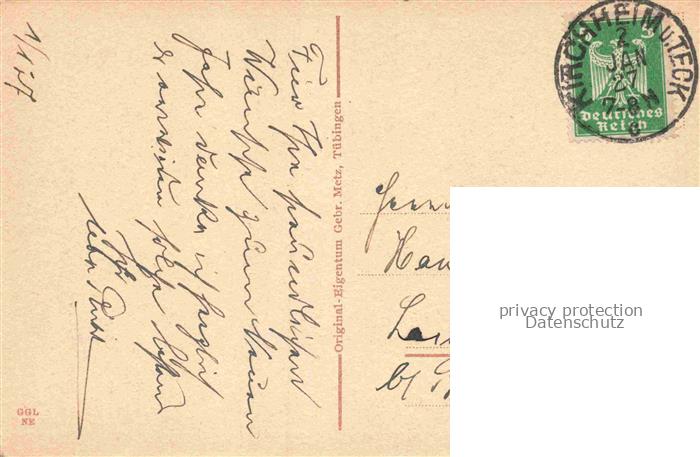 1/1 27
Für Ihre freundlichen
Wünsche zum Neuen
Jahr danke ich herzlich
& erwidere solche bestens
Ihr
Original-Eigentum Gebr. Metz, Tübingen
GGL
NE
KIRCHHEIM u. TECK
2
JAN
27
7-8 N
Deutsches
Reich
Herrn
privacy protection
Datenschutz